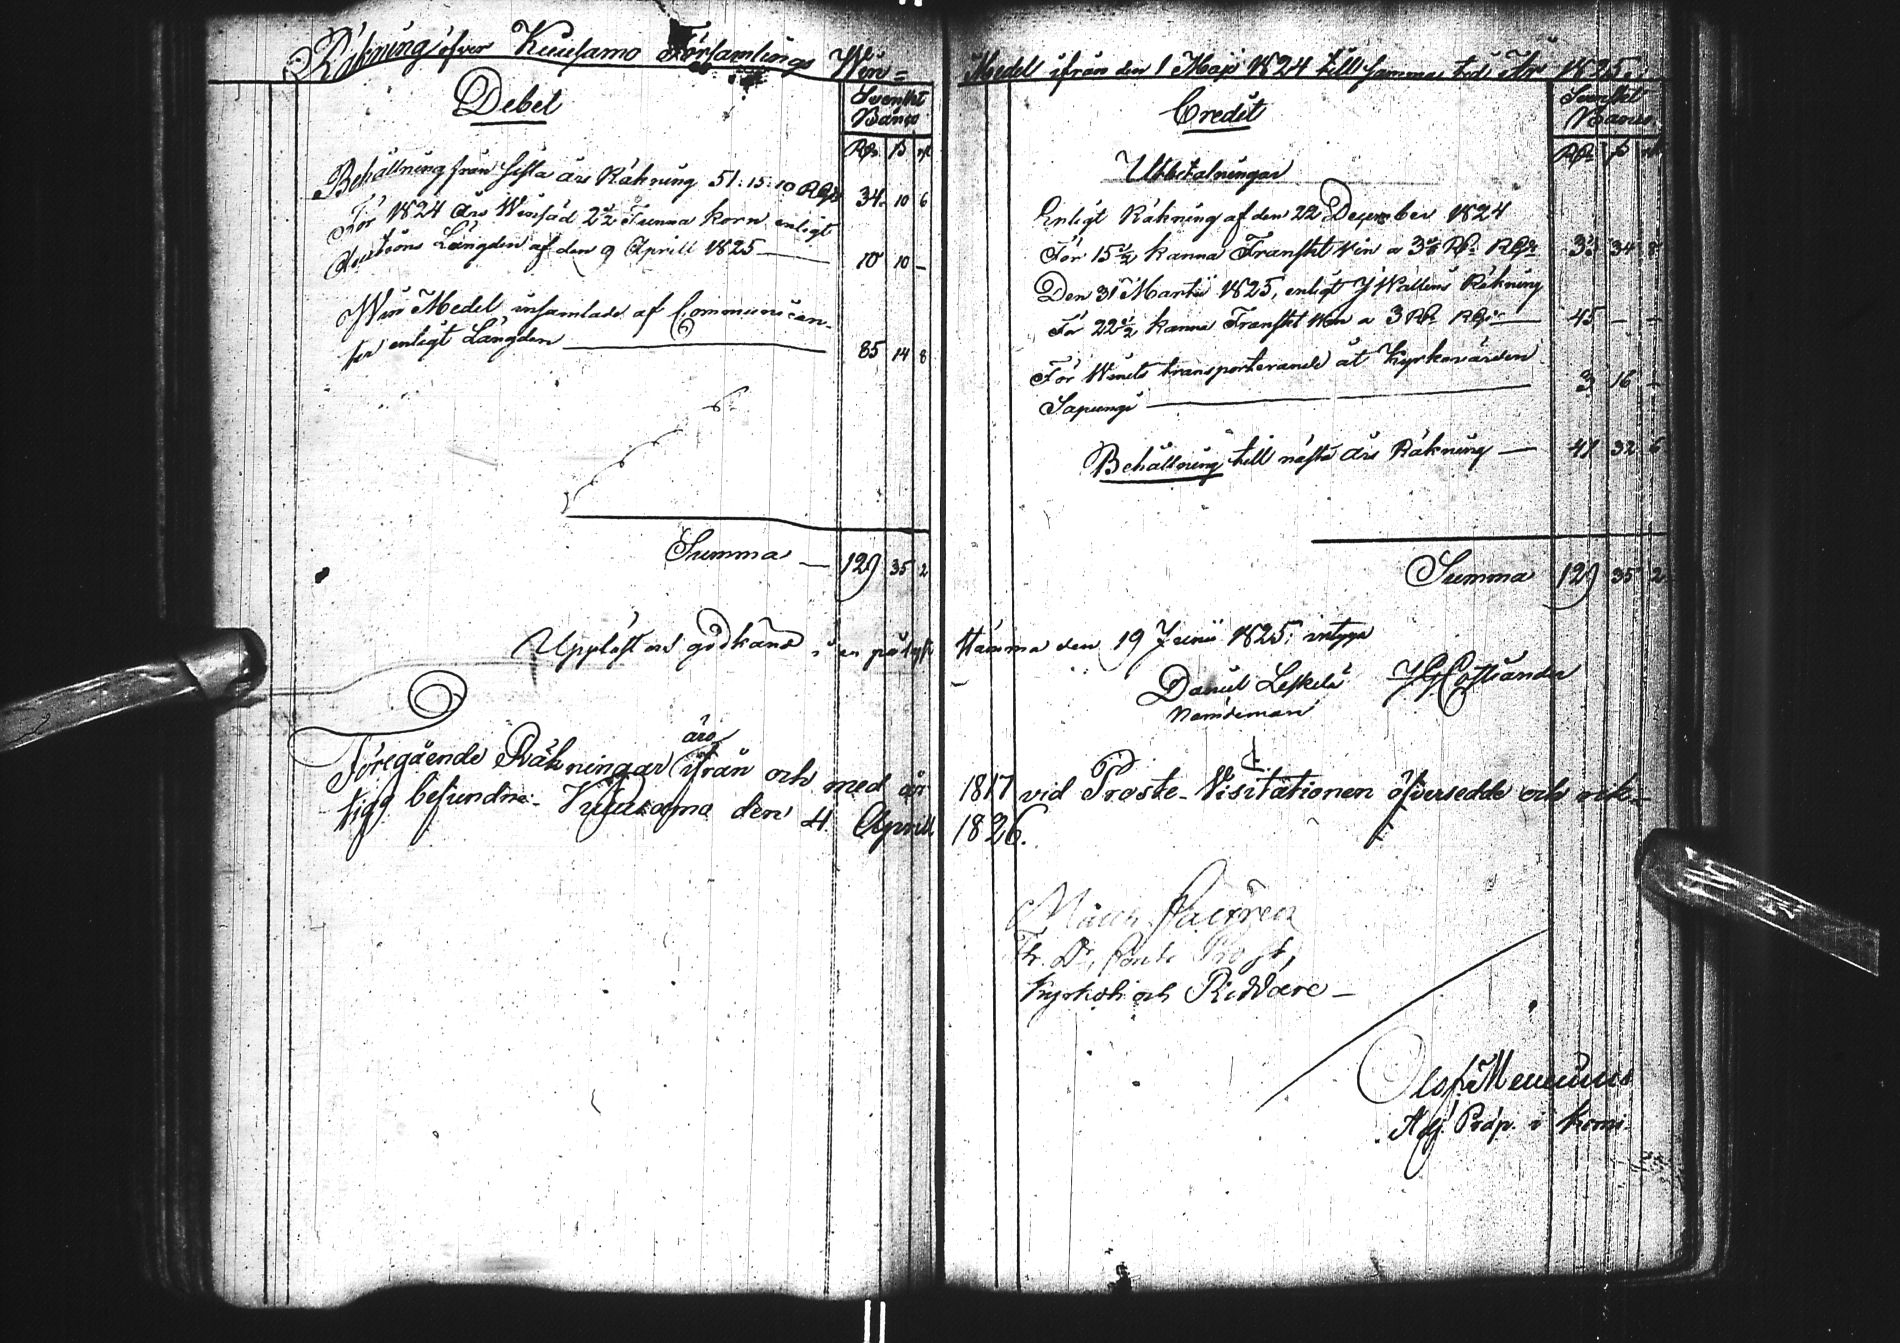 Räkning öfver Kuusamo Församlings Win=
Debet
Svenskt
Banco
RDr ß rst
Behållning från sista års Räkning 51:15:10 RGs 34. 10 6
För 1824 års Winsäd 2½ Tunna korn enligt
Auctions Längden af den 9 Aprill 1825 — 10 10 –
Win Medel insamlade af Communican-
ter enligt Längden — 85 14 8
Summa — 129 35 2
Medel ifrån den 1 Maji 1824 till samma tid År 1825.
Credit
Svenskt
Banco.
RDr ß rst
Utbetalningar
Enligt Räkning af den 22 December 1824
För 15½ kanna Franskt Win a RGs 34 8
Den 31 Martii 1825, enligt J Wallens Räkning
För 22½ kanna Franskt Win a 3 RDr RGs — 45 – –
För Winets transporterande åt Kyrkovärden
Sapungi — 3 16 –
Behållning till nästa års Räkning — 41 32 6
Summa 129 35 2
Uppläst och godkänd i en pålyst Stämma den 19 Junii 1825, intyga
Daniel Leskelä
Nämdeman
Föregående Räkningar äro ifrån och med år 1817 vid Proste-Visitationen öfversedde och rik-
tige befundne. Kuusamo den 4 Aprill 1826.
Th. Dr, Prost,
Kyrkoh. och Riddare –
Olof
Adj. Präp. i Kemi.